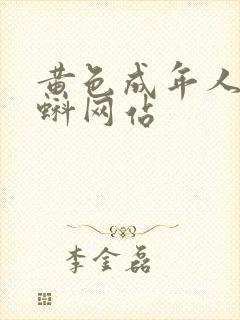 黄色成年人
蝌网佔
李金磊